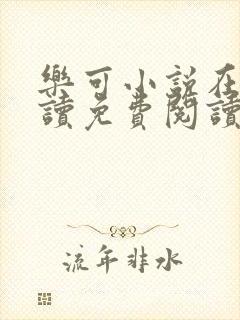 樂可小說在
讀免費閱讀
流年非水